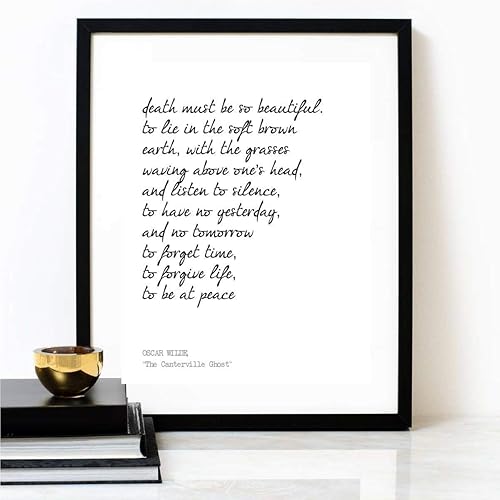 death must be so beautiful.
to lie in the soft brown
earth, with the grasses
waving above one's head,
and listen to silence,
to have no yesterday,
and no tomorrow
to forget time,
to forgive life,
to be at peace
OSCAR WILDE,
"The Canterville Ghost"